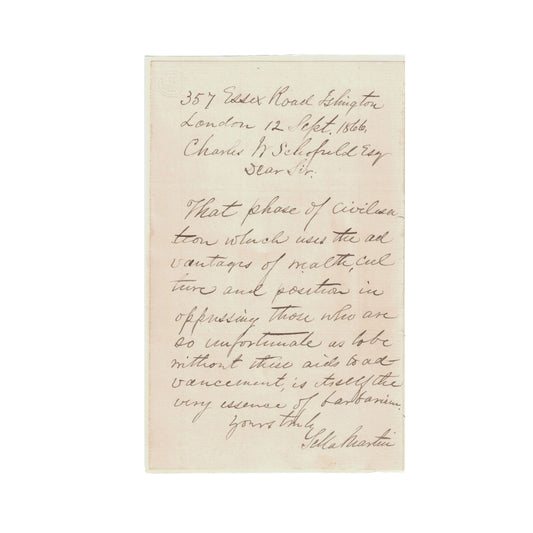 357 Essex Road Islington
London 12 Sept. 1866.
Charles W Schofield Esq
Dear Sir.
That phase of civilisa-
tion which uses the ad
vantages of wealth, cul
ture and position in
oppressing those who are
so unfortunate as to be
without these aids to ad-
vancement, is itself the
very essence of barbarism.
Yours truly
Sella Martin